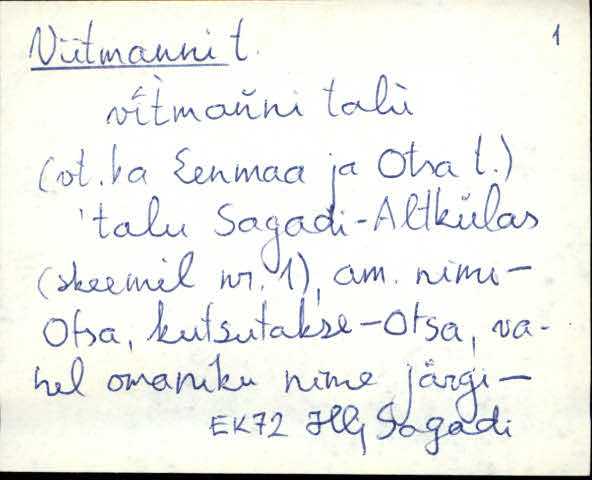 Viitmanni t.
1
vī̬tman̆ni talù
(vt. ka Eenmaa ja Otsa t.)
'talu Sagadi-Altkülas
(skeemil nr. 1), am. nimi-
Otsa, kutsutakse-Otsa, va-
hel omaniku nime järgi-
EK72 Hlj Sagadi